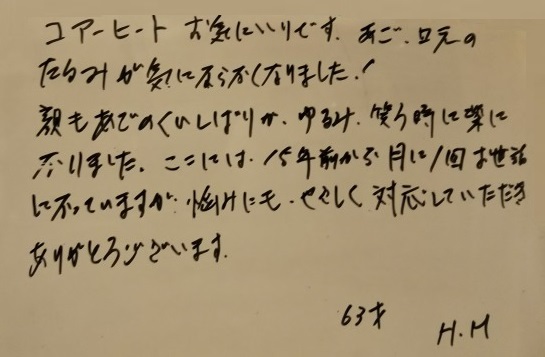 コアーヒート お気にいりです。あご、口元の
たるみが気にならなくなりました！
顔もあごのくいしばりが、ゆるみ、笑う時に楽に
なりました。ここには、15年前から月に1回お世話
になっていますが、悩みにも、やさしく対応していただき
ありがとうございます。
63才 H.M